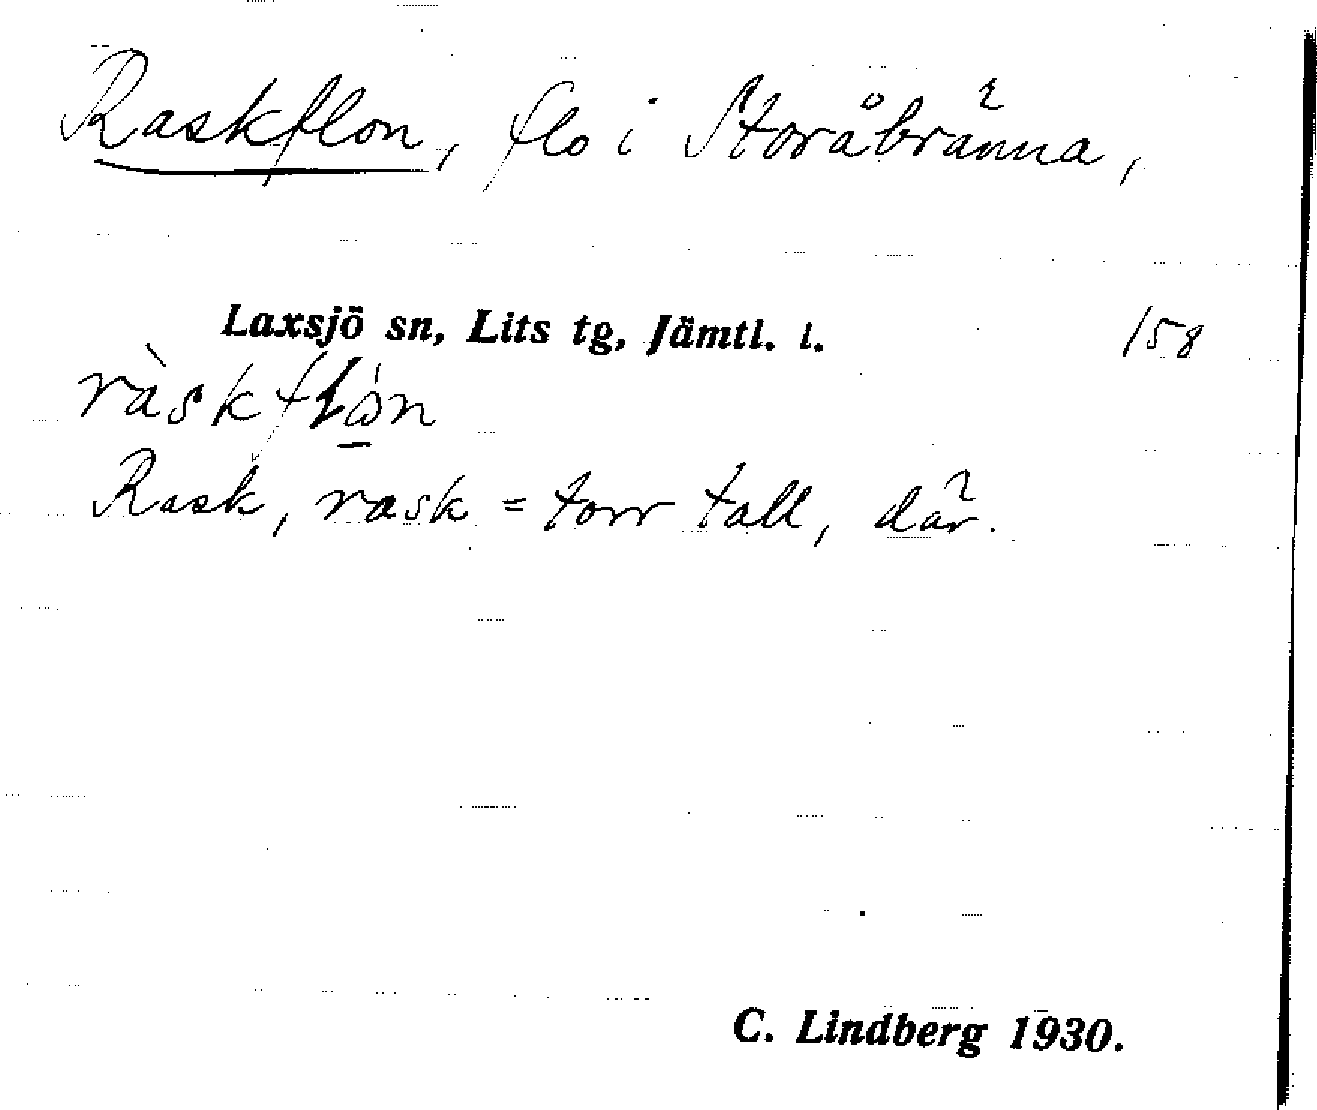 Raskflon, flo i Storåbränna,
Laxsjö sn, Lits tg, Jämtl. l. 158
ràskflo̠̍n
Rask, rask = torr tall, där.
C. Lindberg 1930.